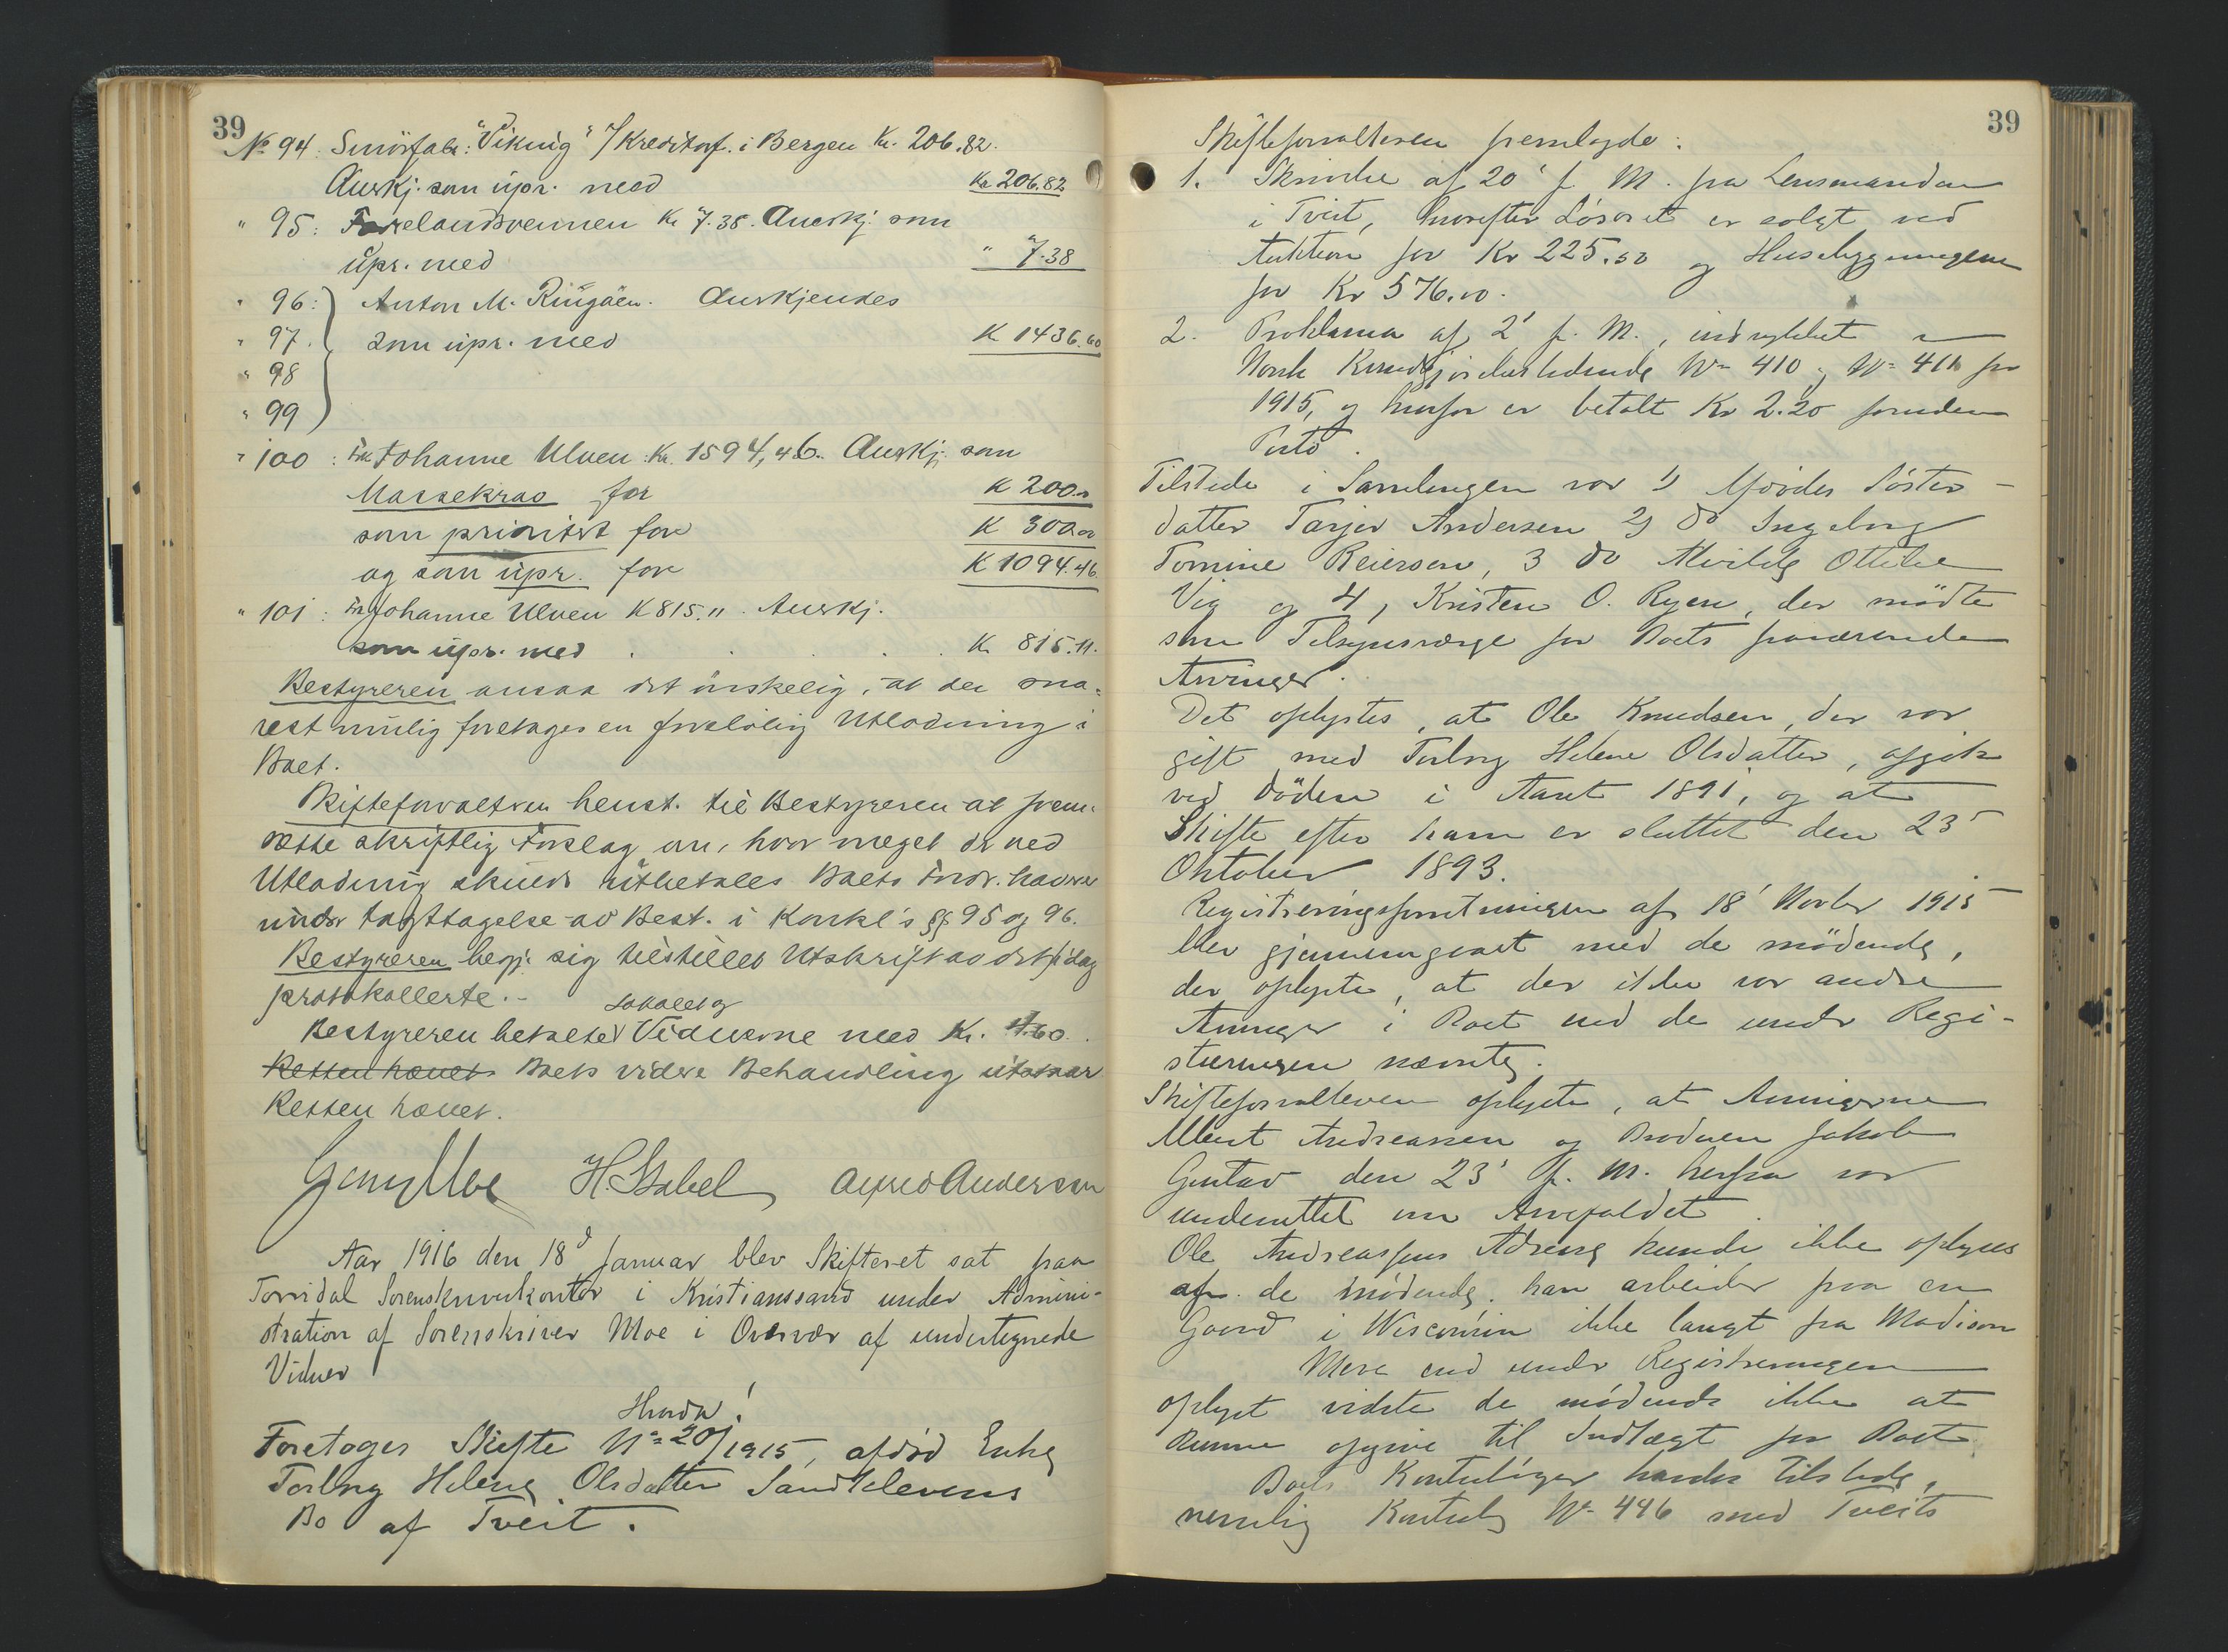 39
No 94. Smörfabr: "Viking" v/ Kreditorf. i Bergen Kr. 206.82.
Anerkj. som üpr. med Kr 206.82
" 95: Forelandsvennen Kr 7.38. Anerkj. som
üpr. med " 7.38
" 96: Anton M. Ringåen. Anerkjendes
" 97. som üpr. med K 1436.60
" 98
" 99
" 100: Frk Johanne Ulven: Kr. 1594,46. Anerkj. som
Massekrav for K 200.00
som prioritet for K 300.00
og som üpr. for K 1094.46
" 101: Frk Johanne Ulven K 815.11. Anerkj.
som üpr. med . . . . K. 815.11.
Bestyreren ansaa det önskelig, at der sna-
rest mulig foretages en foreløbig Utlodning i
Boet.
Skifteforvalteren henst. til Bestyreren at frem-
sætte skriftlig Forslag om, hvor meget der ved
Utlodning skulde utbetales Boets Fordr.havere
under Iagttagelse av Best. i Konkl's §§ 95 og 96.
Bestyreren begj. sig tilstillet Utskrift av det idag
protokollerte. -
Lokalet og
Bestyreren betalte Vidnerne med Kr. 4.60.
Retten hævet Boets videre Behandling utsattes
Retten hævet.
Moe H. Stabel Alfred Andersen
Aar 1916 den 18d Januar blev Skifteret sat paa
Torridal Sorenskriverkontor i Kristianssand under Admini-
stration af Sorenskriver Moe i Overvær af undertegnede
Vidner
Hvorda!
Foretoges Skifte No 20/1915, afdöd Enke
Torborg Helene Olsdatter Sandklevens
Bo af Tveit.
39
Skifteforvalteren fremlagde:
1. Skrivelse af 20' f. M. fra Lensmanden
i Tveit, hvorefter Løsöret er solgt ved
Auktion for Kr 225.50 og Husebygningerne
for Kr 576.00.
2. Proklama af 2' f. M., indrykket i
Norsk Kundgjørelsestidende No 410 og No 416 for
1915, og herfor er betalt Kr 2.20 foruden
Porto.
Tilstede i Samlingen var 1) Afdödes Söster-
datter Tarjer Andersen 2) do Ingeborg
Tomine Reierson, 3 do Alvilde Ottilie
Vig og 4, Kristen O. Ryen, der mödte
som Tilsynsværge for Boets fraværende
Arvinger.
Det oplystes, at Ole Knudsen, der var
gift med Torborg Helene Olsdatter, afgik
ved Döden i Aaret 1891, og at
Skifte efter ham er sluttet den 23'
Oktober 1893.
Registreringsforretningen af 18' Novbr 1915
blev gjennemgaaet med de mödende,
der oplyste, at der ikke var andre
Arvinger i Boet end de under Regi-
streringen nævnte.
Skifteforvalteren oplyste, at Arvingerne
Albert Andreassen og Broderen Jakob
Gustav den 23' f. M. herfra var
underrettet om Arvefaldet.
Ole Andreassens Adresse kunde ikke oplyses
af de mödende, han arbeider paa en
Gaard i Wisconsin ikke langt fra Madison
Mere end under Registreringen
oplyst vidste de mödende ikke at
kunne opgive til Indtægt for Boet.
Boets Kontrabøger havdes tilstede,
nemlig Kontrab. No 446 med Tveits